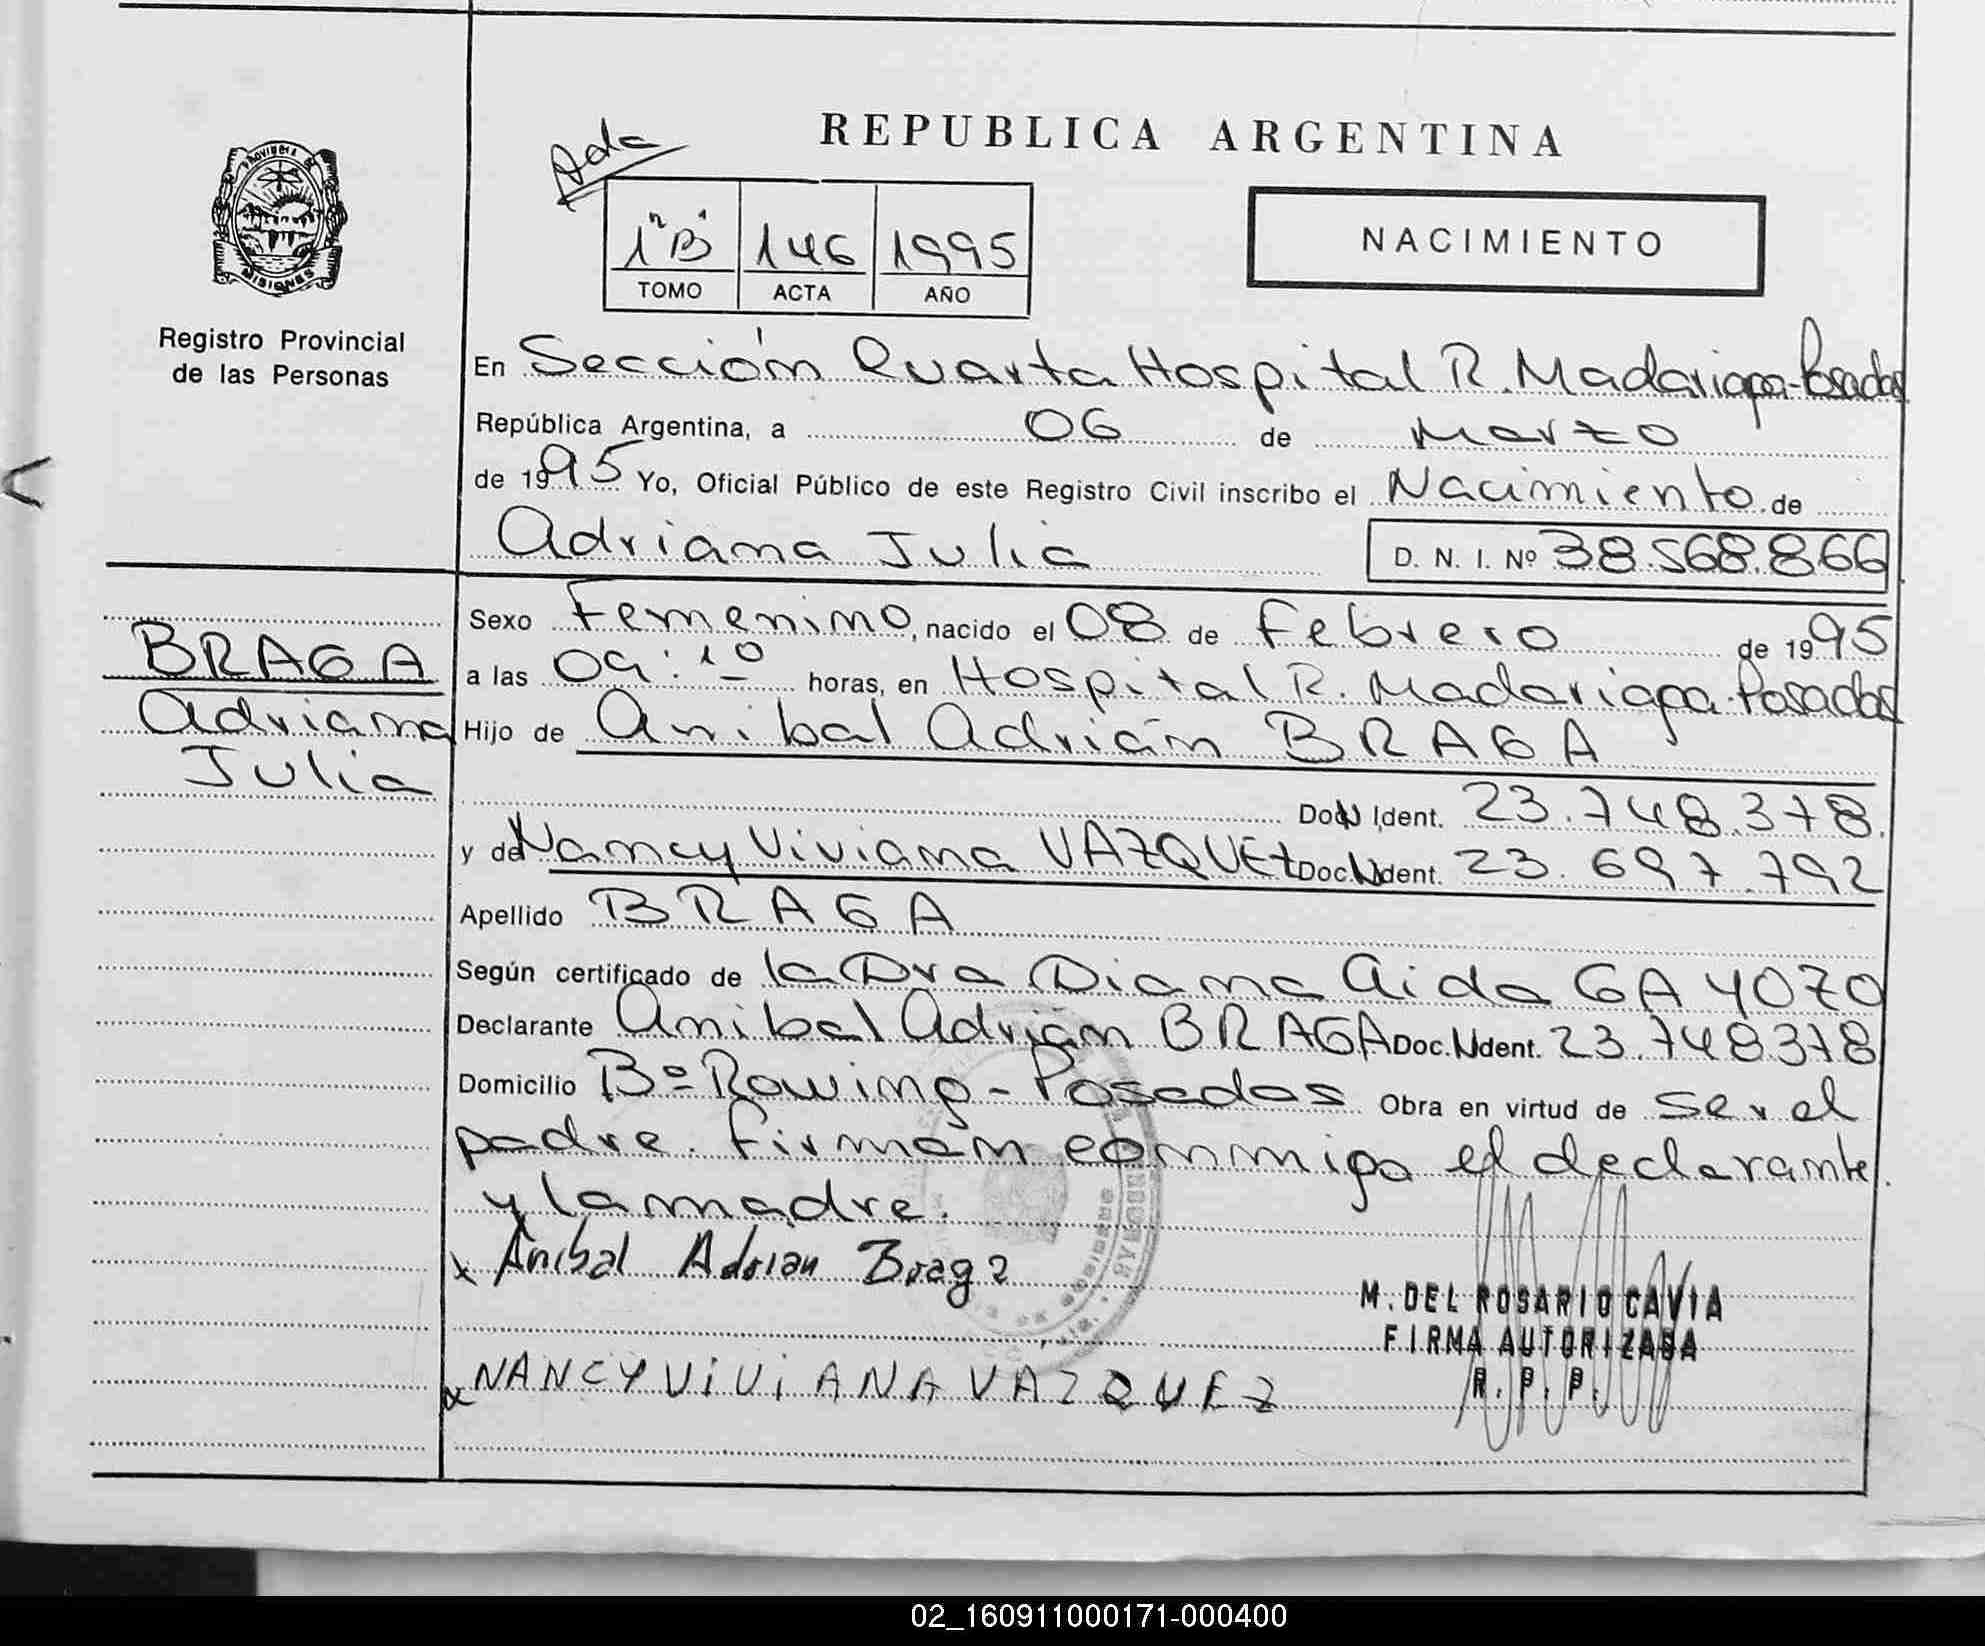 REPUBLICA ARGENTINA
PROVINCIA DE
MISIONES
Registro Provincial
de las Personas
1º "B" 146 1995
TOMO ACTA AÑO
NACIMIENTO
En Sección Quarta Hospital R. Madariaga-Posadas
República Argentina, a 06 de Marzo
de 1995 Yo, Oficial Público de este Registro Civil inscribo el Nacimiento de
Adriana Julia D. N. I. Nº 38.568.866
BRAGA
Adriana
Julia
Sexo Femenino, nacido el 08 de Febrero de 1995
a las 09:10 horas, en Hospital R. Madariaga-Posadas
Hijo de Anibal Adrián BRAGA
Doc. Ident. 23.748.378.
y de Nancy Viviana VAZQUEZ Doc. Ident. 23.697.792
Apellido BRAGA
Según certificado de la Dra Diana Aida GAYOZO
Declarante Anibal Adrián BRAGA Doc. Ident. 23.748378
Domicilio Bº Rowing - Posadas Obra en virtud de ser el
padre. Firman conmigo el declarante
y la madre.
x Anibal Adrian Braga
M. DEL ROSARIO CAVIA
FIRMA AUTORIZADA
R. P. P.
x NANCY ViViANA VAZQUEZ
02_160911000171-000400